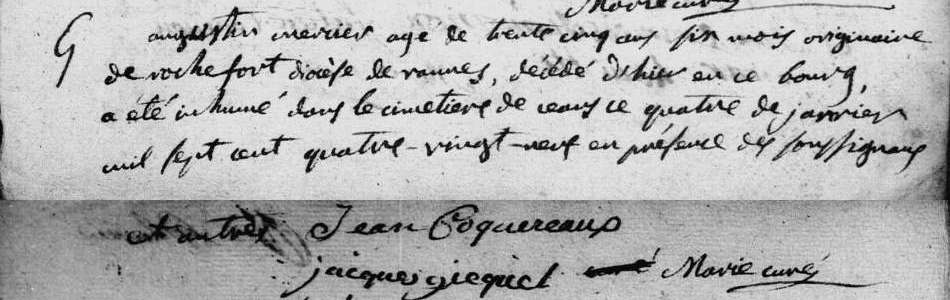 Marie curé
G augustin mercier agé de trente cinq ans six mois originaire
de rochefort diocèse de vannes, décédé d'hier en ce bourg,
a été inhumé dans le cimetiere de ceans ce quatre de janvier
mil sept cent quatre-vingt-neuf en présence des soussignans
et autres Jean Coquereaux
jacques gicquel Marie curé